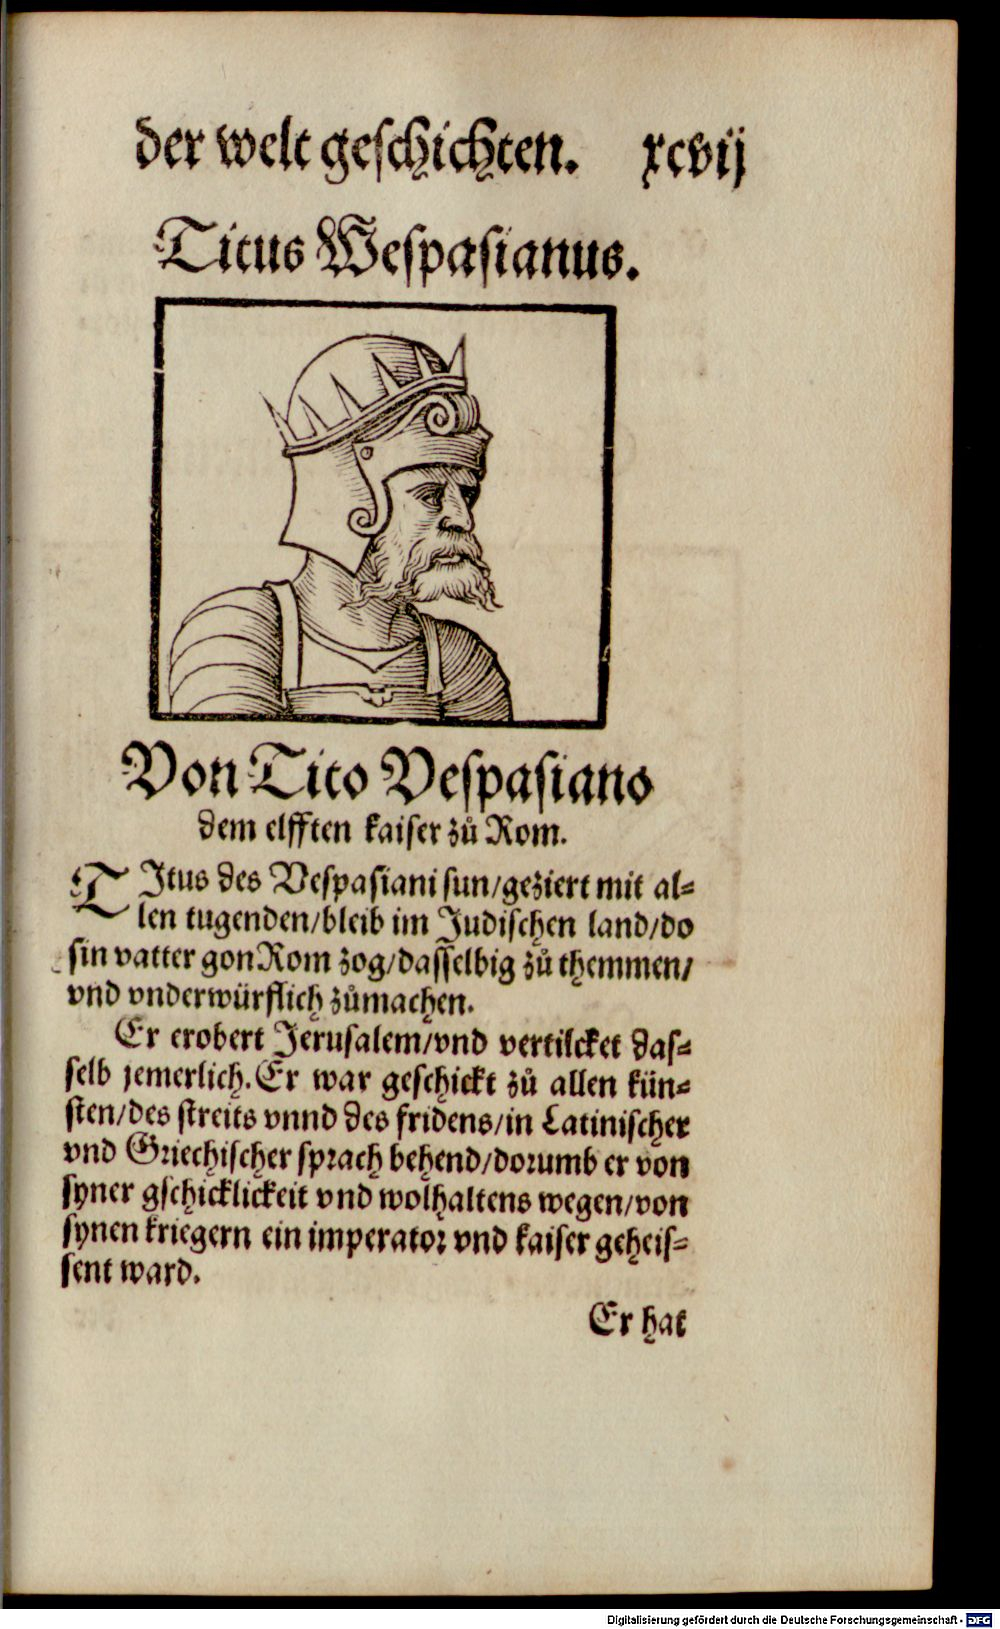 der welt geschichten. xcvij
Titus Wespasianus.
Von Tito Vespasiano
dem elfften kaiser zů Rom.
TItus des Vespasiani sun/geziert mit al-
len tugenden/bleib im Judischen land/do
sin vatter gon Rom zog/dasselbig zů themmen/
vnd vnderwürflich zůmachen.
Er erobert Jerusalem/vnd vertilcket das-
selb jemerlich. Er war geschickt zů allen kün-
sten/des streits vnnd des fridens/in Latinischer
vnd Griechischer sprach behend/dorumb er von
syner gschicklickeit vnd wolhaltens wegen/von
synen kriegern ein imperator vnd kaiser geheis-
sent ward.
Er hat
Digitalisierung gefördert durch die Deutsche Forschungsgemeinschaft - DFG